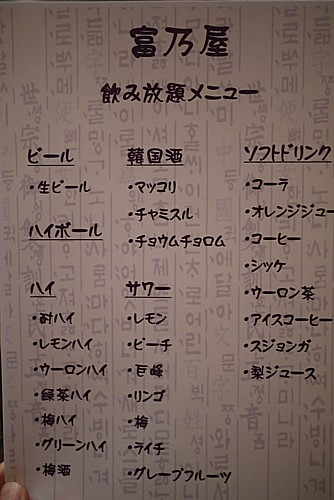 富乃屋
飲み放題メニュー
ビール
・生ビール
ハイボール
ハイ
・酎ハイ
・レモンハイ
・ウーロンハイ
・緑茶ハイ
・梅ハイ
・グリーンハイ
・梅酒
韓国酒
・マッコリ
・チャミスル
・チョウムチョロム
サワー
・レモン
・ピーチ
・巨峰
・リンゴ
・梅
・ライチ
・グレープフルーツ
ソフトドリンク
・コーラ
・オレンジジュー
・コーヒー
・シッケ
・ウーロン茶
・アイスコーヒー
・スジョンガ
・梨ジュース